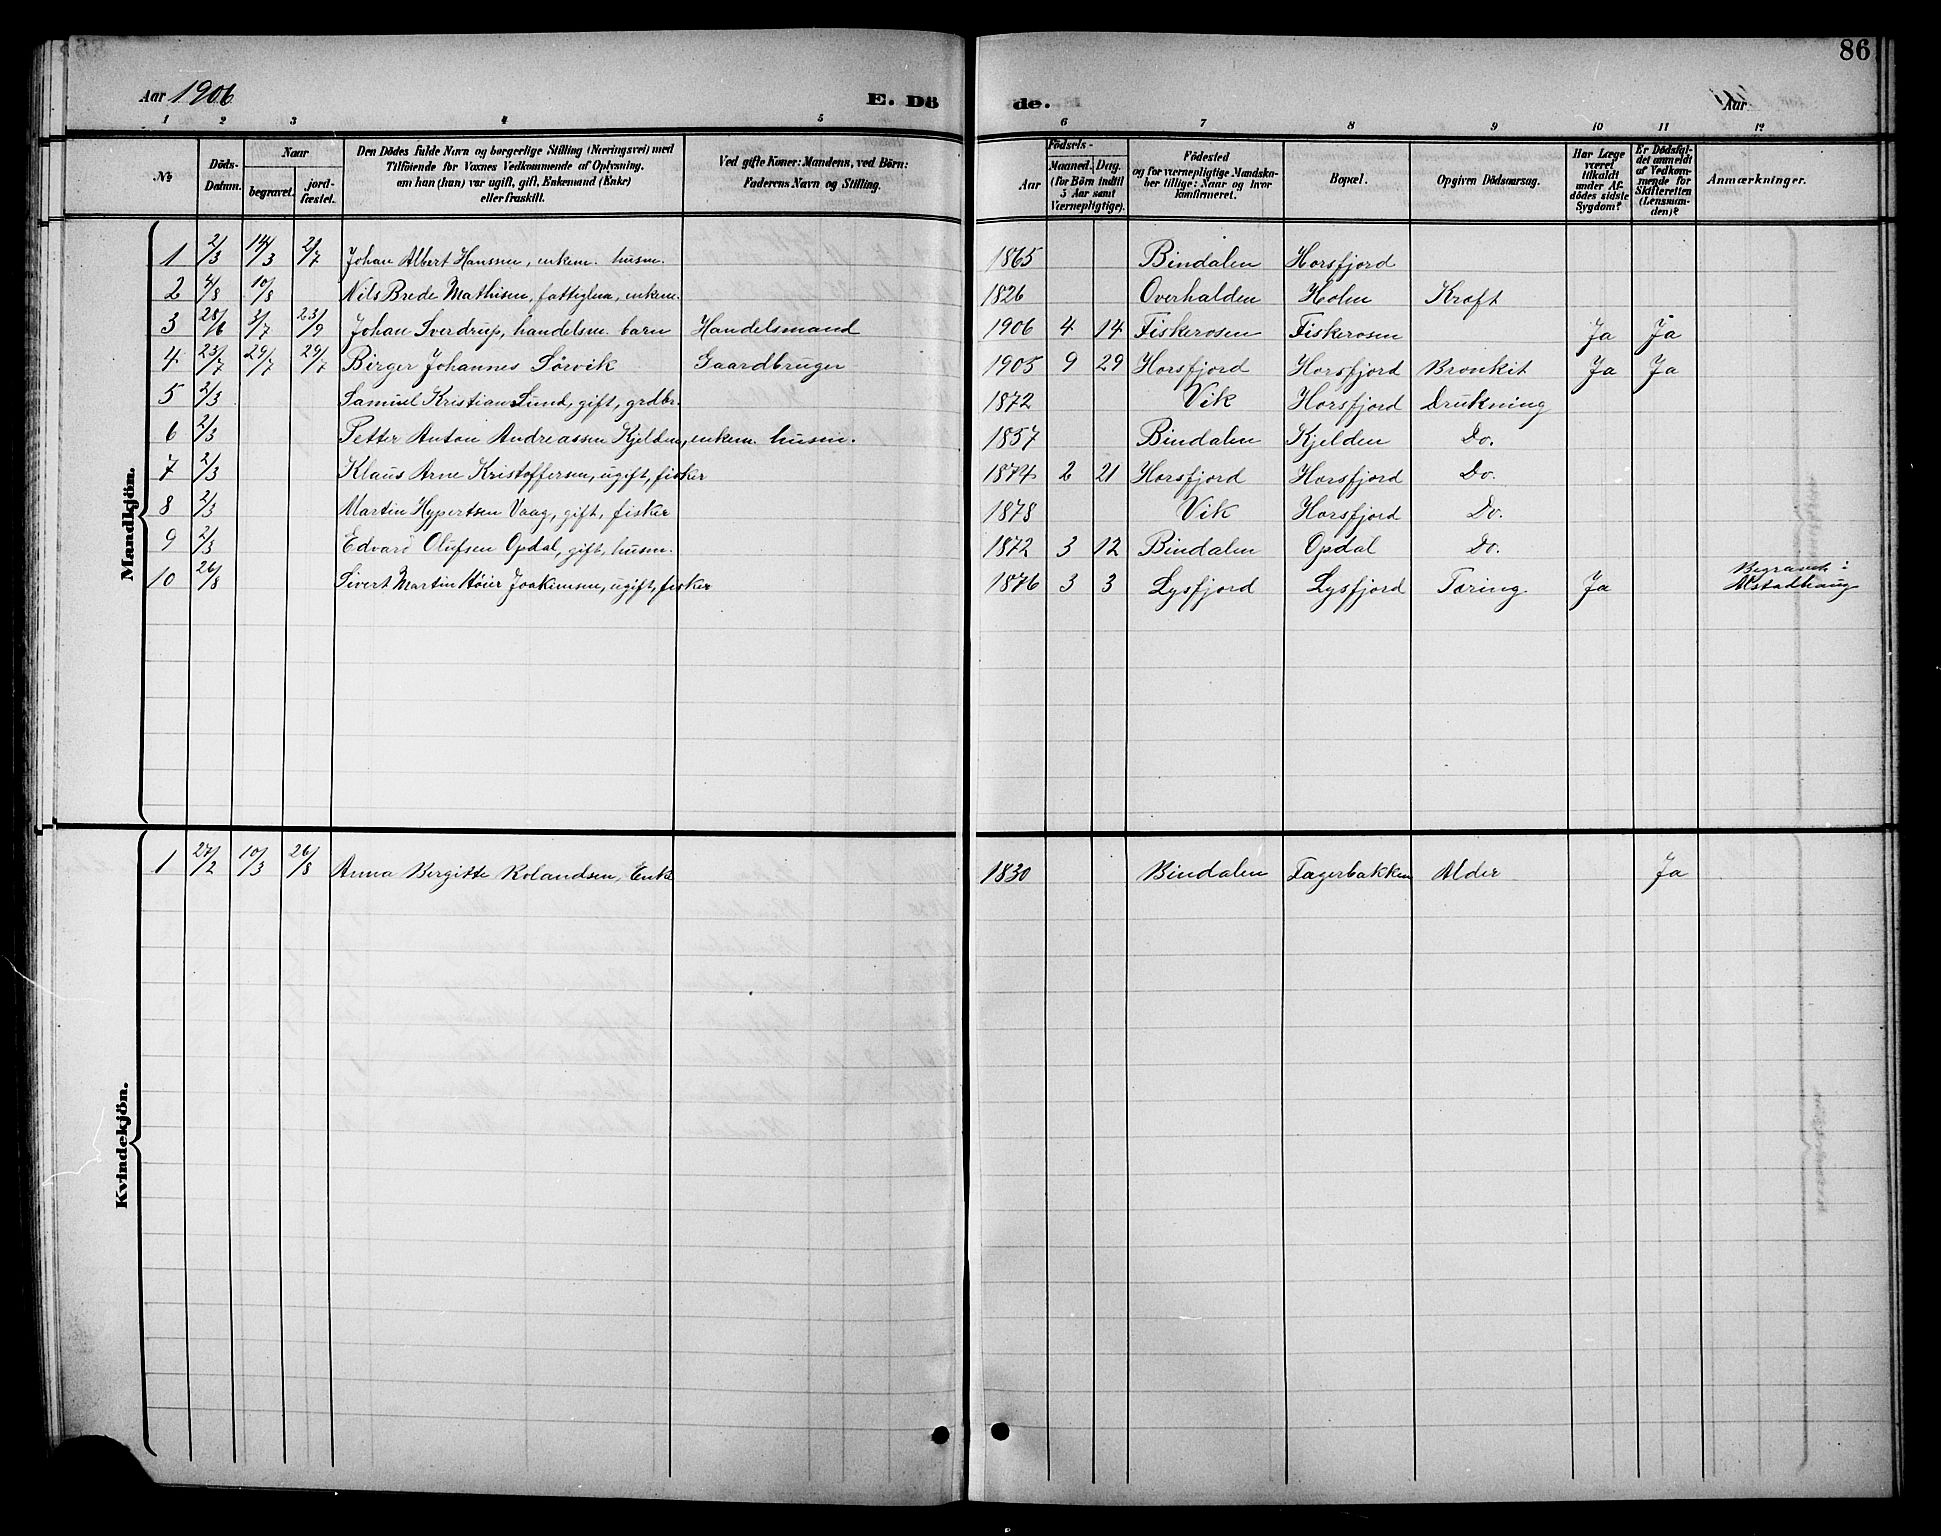 86
Aar 1906 E. Dö de. Aar
1 2 3 4 5 6 7 8 9 10 11 12
№ Döds-Datum. Naar begravet. jordfæstet. Den Dödes fulde Navn og borgerlige Stilling (Næringsvei) med Tilföiende for Voxnes Vedkommende af Oplysning, om han (hun) var ugift, gift, Enkemand (Enke) eller fraskilt. Ved gifte Koner: Mandens, ved Börn: Faderens Navn og Stilling. Födsels- Aar Maaned. Dag. (for Börn indtil 5 Aar samt Værnepligtige). Födested og for værnepligtige Mandskaber tillige: Naar og hvor konfirmeret. Bopæl. Opgiven Dödsaarsag. Har Læge været tilkaldt under Afdödes sidste Sygdom? Er Dödsfaldet anmeldt af Vedkommende for Skifteretten (Lensmanden)? Anmærkninger.
Mandkjön.
1 2/3 14/3 2/7 Johan Albert Hanssen, enkem. husm. 1865 Bindalen Horsfjord
2 4/8 10/8 Nils Brede Mathisen, fattiglem, enkem. 1826 Overhalden Holm Kræft
3 28/6 3/7 23/9 Johan Sverdrup, handelsm. barn Handelsmand 1906 4 14 Fiskerosen Fiskerosen Ja Ja
4 23/7 29/7 29/7 Birger Johannes Sörvik Gaardbruger 1905 9 29 Horsfjord Horsfjord Bronkit Ja Ja
5 2/3 Samuel Kristian Lund, gift, grdbr. 1872 Vik Horsfjord Drukning
6 2/3 Petter Anton Andreassen Kjelden, enkem. husm. 1857 Bindalen Kjelden Do.
7 2/3 Klaus Arne Kristoffersen, ugift, fisker 1874 2 21 Horsfjord Horsfjord Do.
8 2/3 Martin Hypertsen Vaag, gift, fisker 1878 Vik Horsfjord Do.
9 2/3 Edvard Olufsen Opdal, gift, husm. 1872 3 12 Bindalen Opdal Do.
10 26/8 Sivert Martin Höier Joakimsen, ugift, fisker 1876 3 3 Lysfjord Lysfjord Tæring. Ja Begravet i Alstadhaug
Kvindekjön.
1 27/2 10/3 26/8 Anna Bergitte Rolandsen, Enke 1830 Bindalen Fagerbakken Alder Ja